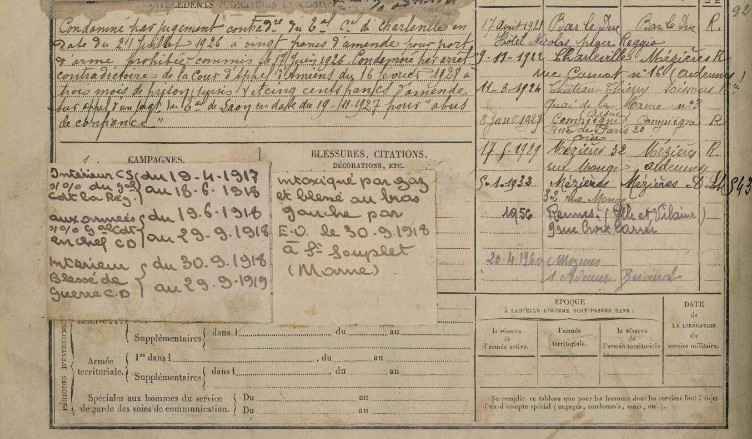 ANTÉCÉDENTS JUDICIAIRES ET CONDAMNATIONS
Condamné par jugement contradre du Tal Cl de Charleville en
date du 21 juillet 1926 à vingt francs d'amende pour port
d'arme prohibée commis le Juin 1926. Condamné par arrêt
contradictoire de la Cour d'Appel d'Amiens du 16 février 1928 à
trois mois de prison (sursis) et cinq cents francs d'amende
sur appel d'un jugt du Tal C. de Laon en date du 19-11-1927 pour "abus
de confiance"
CAMPAGNES.
Intérieur CS du 19-4-1917
s/o du Gal Cdt la Rég. au 18-6-1918
aux armées du 19-6-1918
s/o Gal Cdt en chef CD au 29-9-1918
Intérieur du 30.9.1918
Blessé de guerre C.D au 29-9-1919
BLESSURES, CITATIONS,
DÉCORATIONS, ETC.
intoxiqué par gaz
et blessé au bras
gauche par
E.O. le 30.9.1918
à St Souplet
(Marne)
PÉRIODES D'EXERCICES
Supplémentaires dans l du au
Armée territoriale.
1re dans l du au
Supplémentaires dans l du au
Spéciales aux hommes du service
de garde des voies de communication.
Du au
Du au
92
17 Août 1921 Bar le Duc Bar le Duc R.
Hôtel
9-11-1922 Charleville Mézières R
rue Carnot n° 16 (Ardennes)
11-3-1924 Château-Thierry Soissons R
Quai de la Marne n° 3
8 janv 1927 Compiègne Compiègne R
Rue de Paris 20
Oise
17-5-1929 Mézières 32 Mézières R
rue Monge Ardennes
5-1-1932 Mézières Mézières 543
32 rue Monge
1956 Rennes (Ille et Vilaine)
20-4-1960
ÉPOQUE
À LAQUELLE L'HOMME DOIT PASSER DANS :
la réserve de l'armée active.
l'armée territoriale.
la réserve de l'armée territoriale
DATE
de LA LIBÉRATION
du service militaire.
Ne remplir ce tableau que pour les hommes dont les services font l'objet
d'un décompte spécial (engagés, condamnés, omis, etc.).